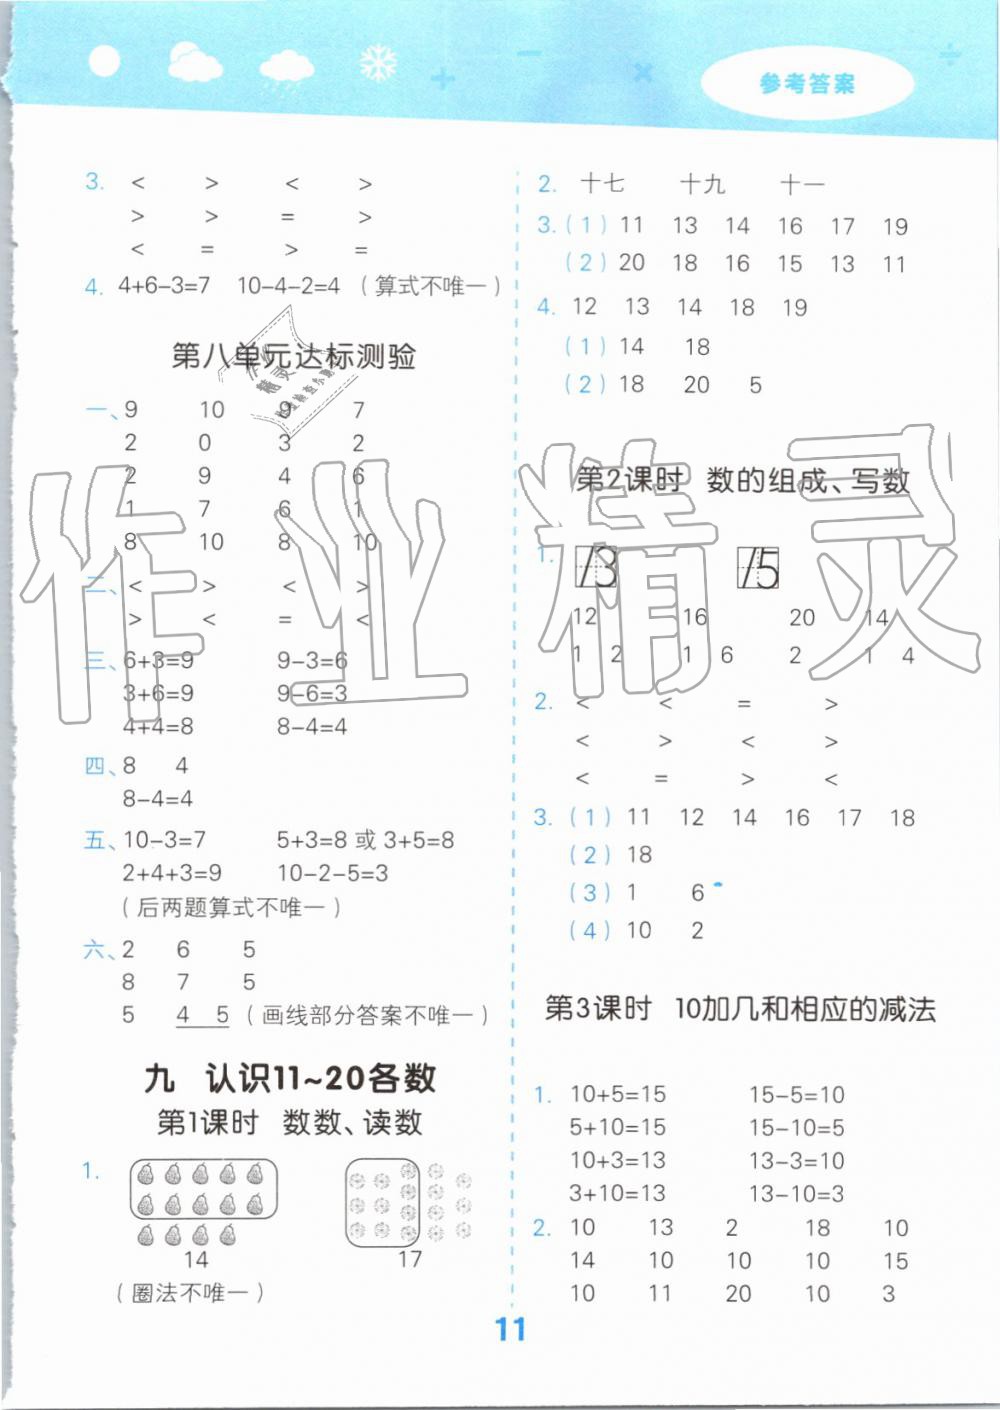 参考答案
3. < > < >
> > = >
< = > =
4. 4+6-3=7 10-4-2=4 （算式不唯一）
第八单元达标测验
一、9 10 9 7
2 0 3 2
2 9 4 6
1 7 6 1
8 10 8 10
二、< > < >
> < = <
三、6+3=9 9-3=6
3+6=9 9-6=3
4+4=8 8-4=4
四、8 4
8-4=4
五、10-3=7 5+3=8 或 3+5=8
2+4+3=9 10-2-5=3
（后两题算式不唯一）
六、2 6 5
8 7 5
5 4 5 （画线部分答案不唯一）
九 认识11~20各数
第1课时 数数、读数
1.
14 17
（圈法不唯一）
2. 十七 十九 十一
3.（1）11 13 14 16 17 19
（2）20 18 16 15 13 11
4. 12 13 14 18 19
（1）14 18
（2）18 20 5
第2课时 数的组成、写数
1. 13 15
12 16 20 14
1 2 1 6 2 1 4
2. < < = >
< > < >
< = > <
3.（1）11 12 14 16 17 18
（2）18
（3）1 6
（4）10 2
第3课时 10加几和相应的减法
1. 10+5=15 15-5=10
5+10=15 15-10=5
10+3=13 13-3=10
3+10=13 13-10=3
2. 10 13 2 18 10
14 10 10 10 15
10 11 20 10 3
11
作业精灵